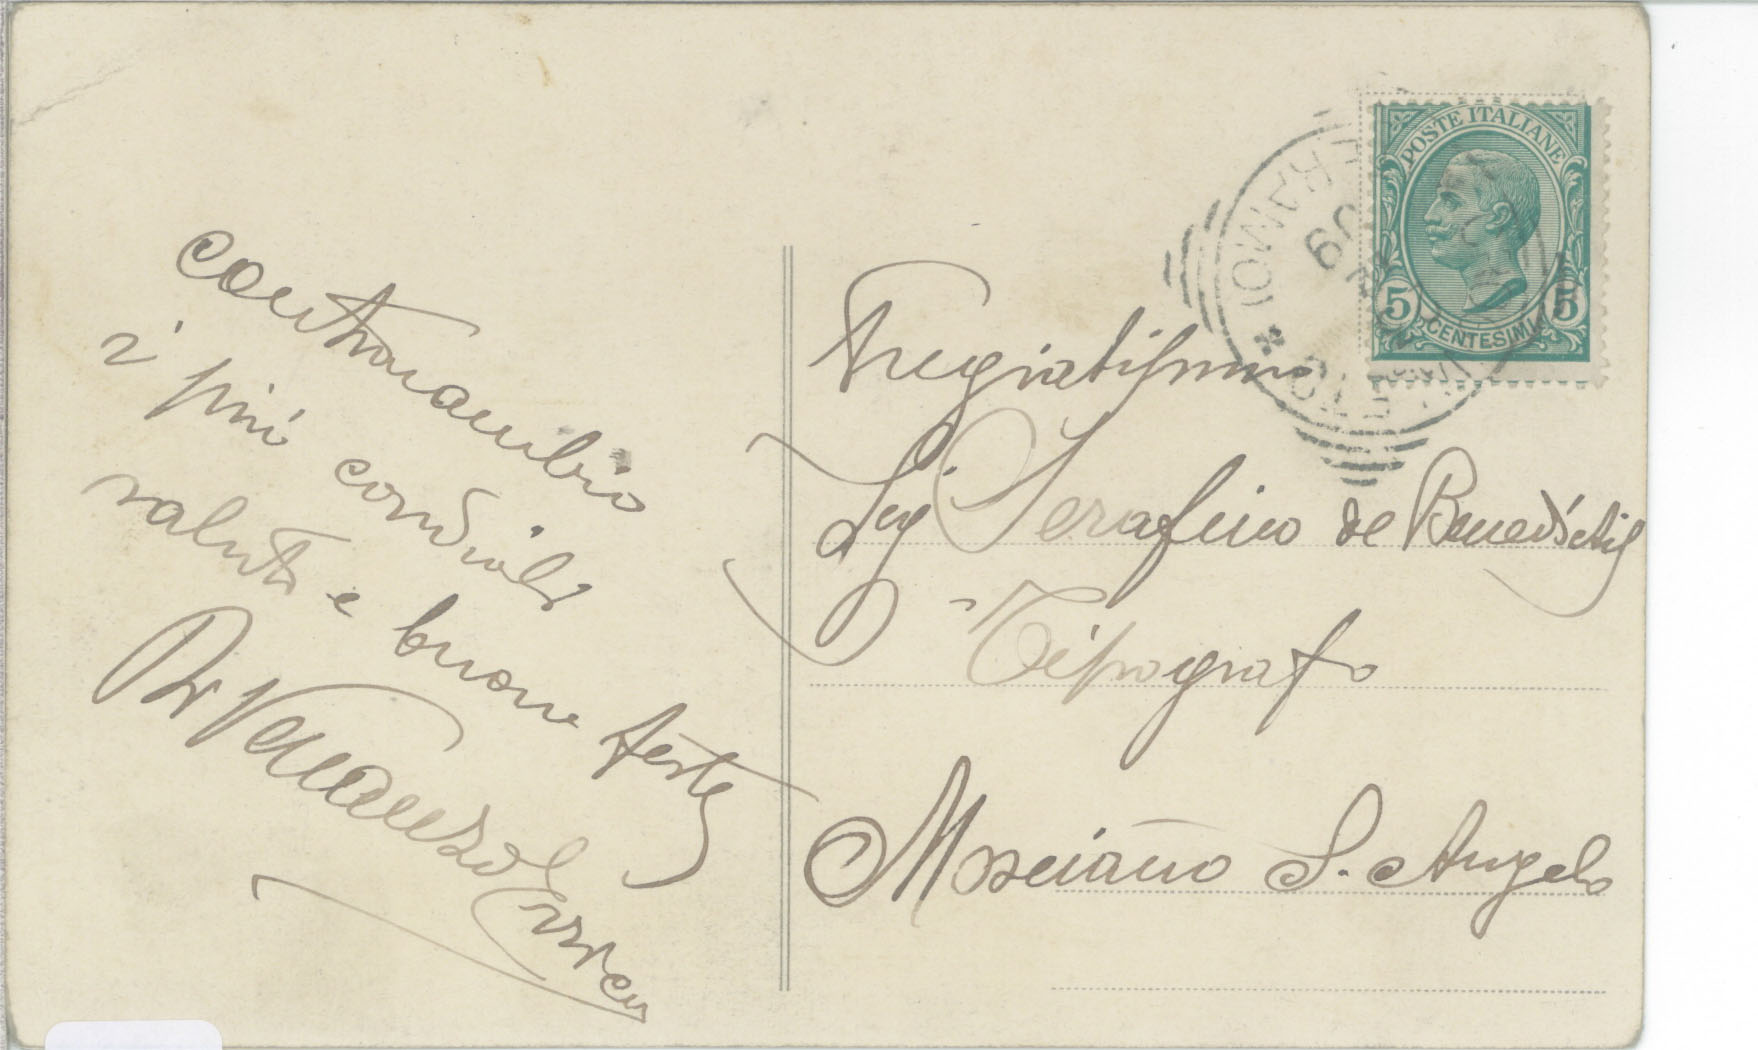 contraccambio
i più cordiali
saluti e buone feste
Dr
Pregiatissimo
Sig Serafino de Benedictis
Tipografo
Mosciano S. Angelo
POSTE ITALIANE
5 5
CENTESIMI
TERAMO
09